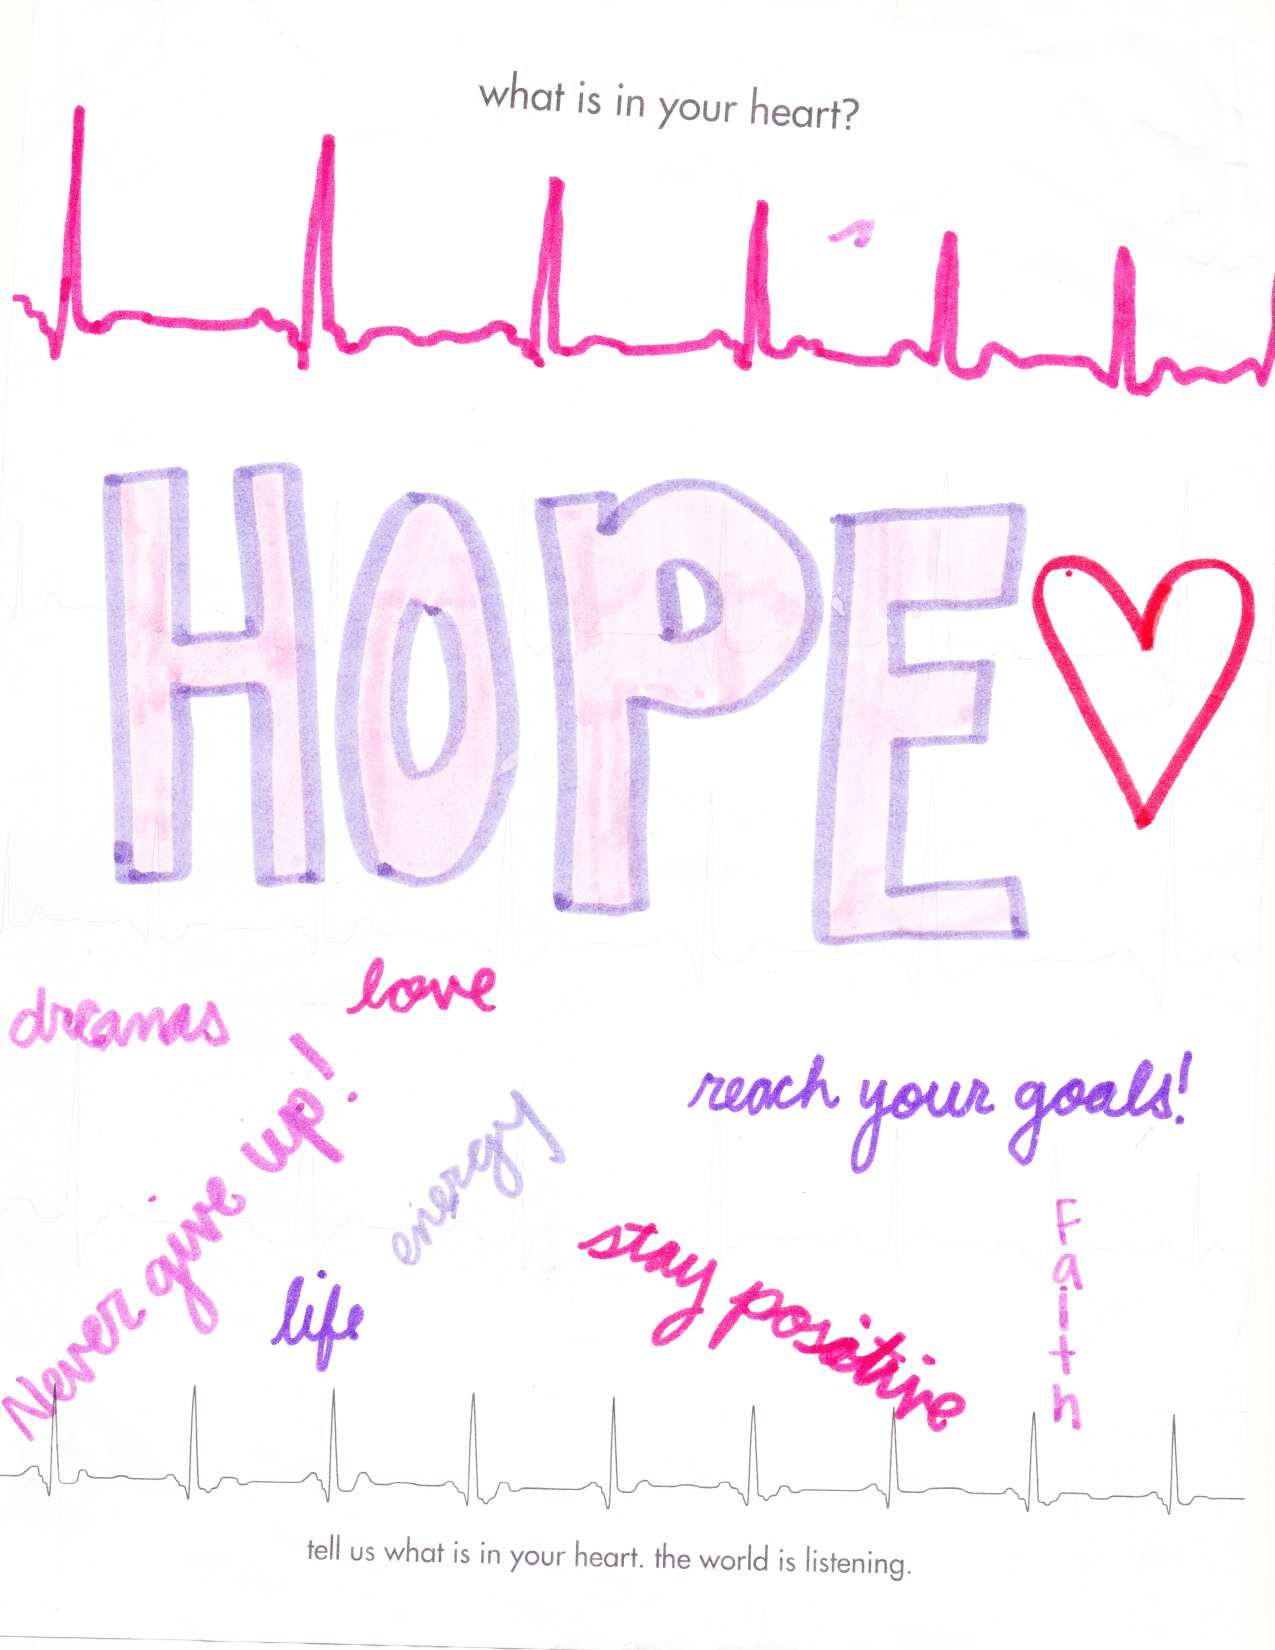 what is in your heart?
HOPE
dreams
love
Never give up!
energy
reach your goals!
life
stay positive
Faith
tell us what is in your heart. the world is listening.